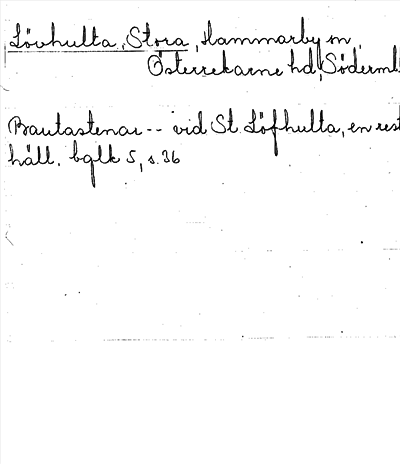 Lövhulta, Stora, Hammarby sn,
Österrekarne hd, Söderml
Bautastenar -- vid St. Löfhulta, en rest
häll. bglk 5, s. 36